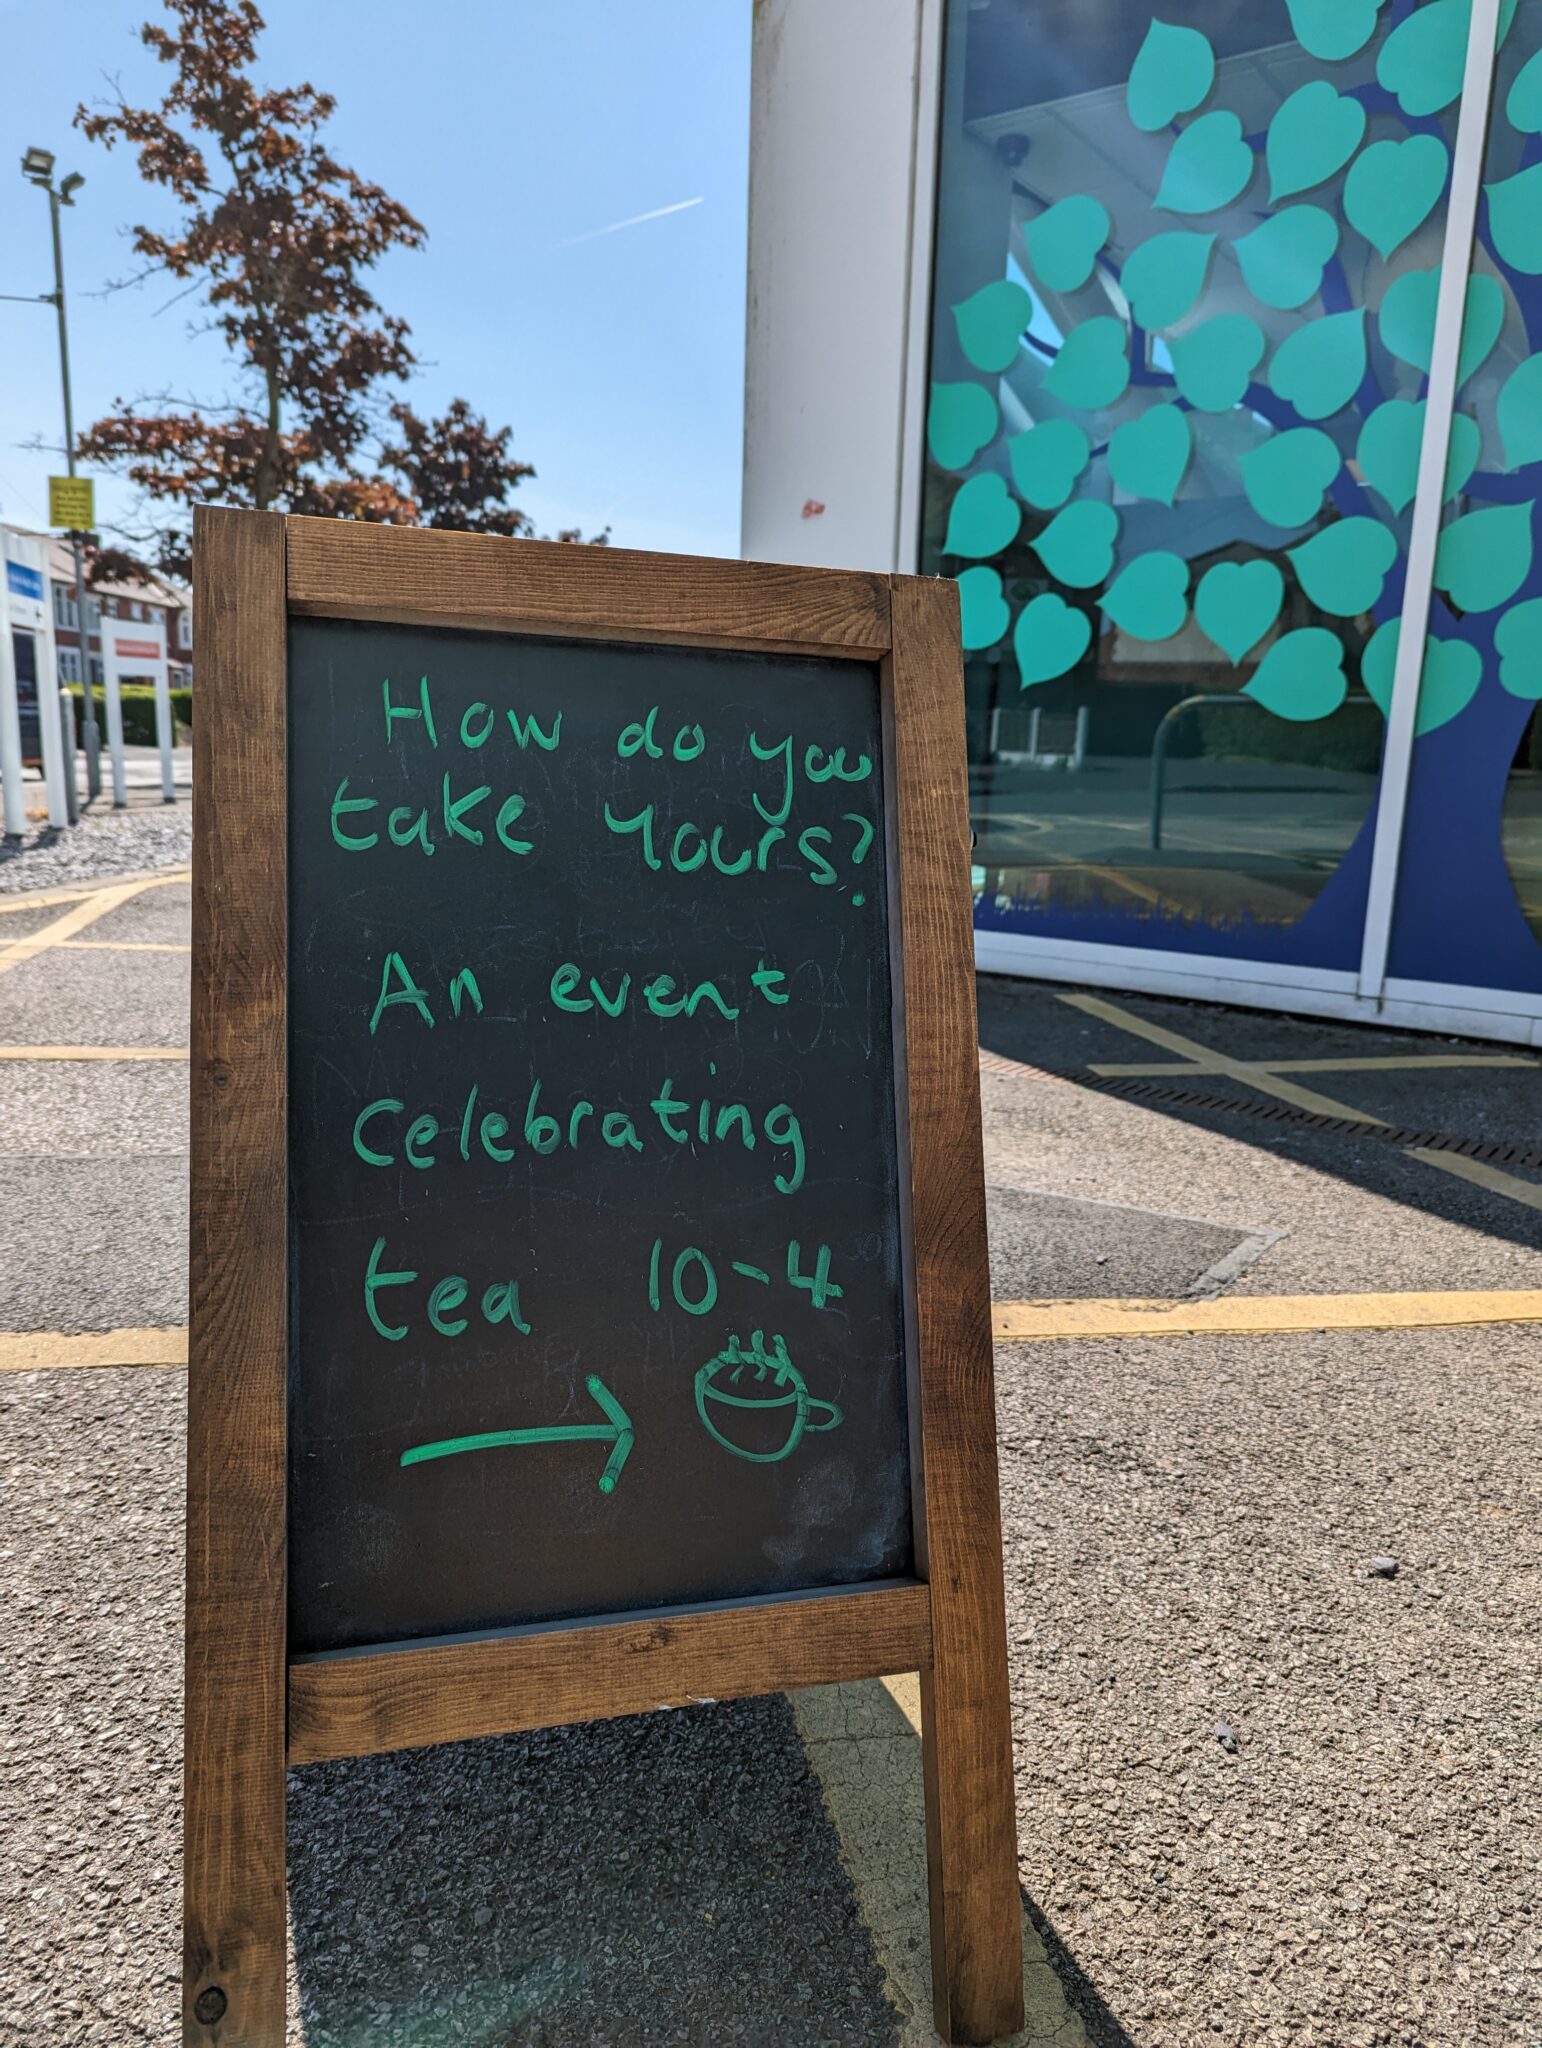 How do you
take yours?
An event
Celebrating
tea 10-4